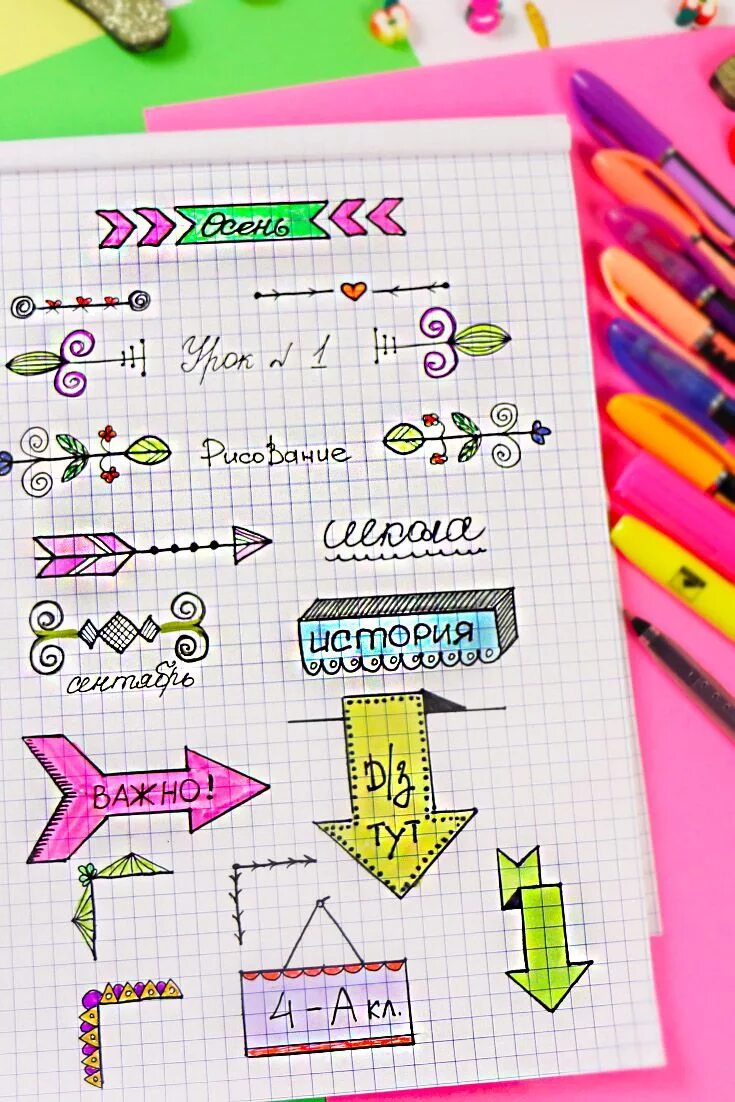 Осень
Урок № 1
Рисование
школа
ИСТОРИЯ
сентябрь
Д/З
ТУТ
ВАЖНО!
4-А кл.